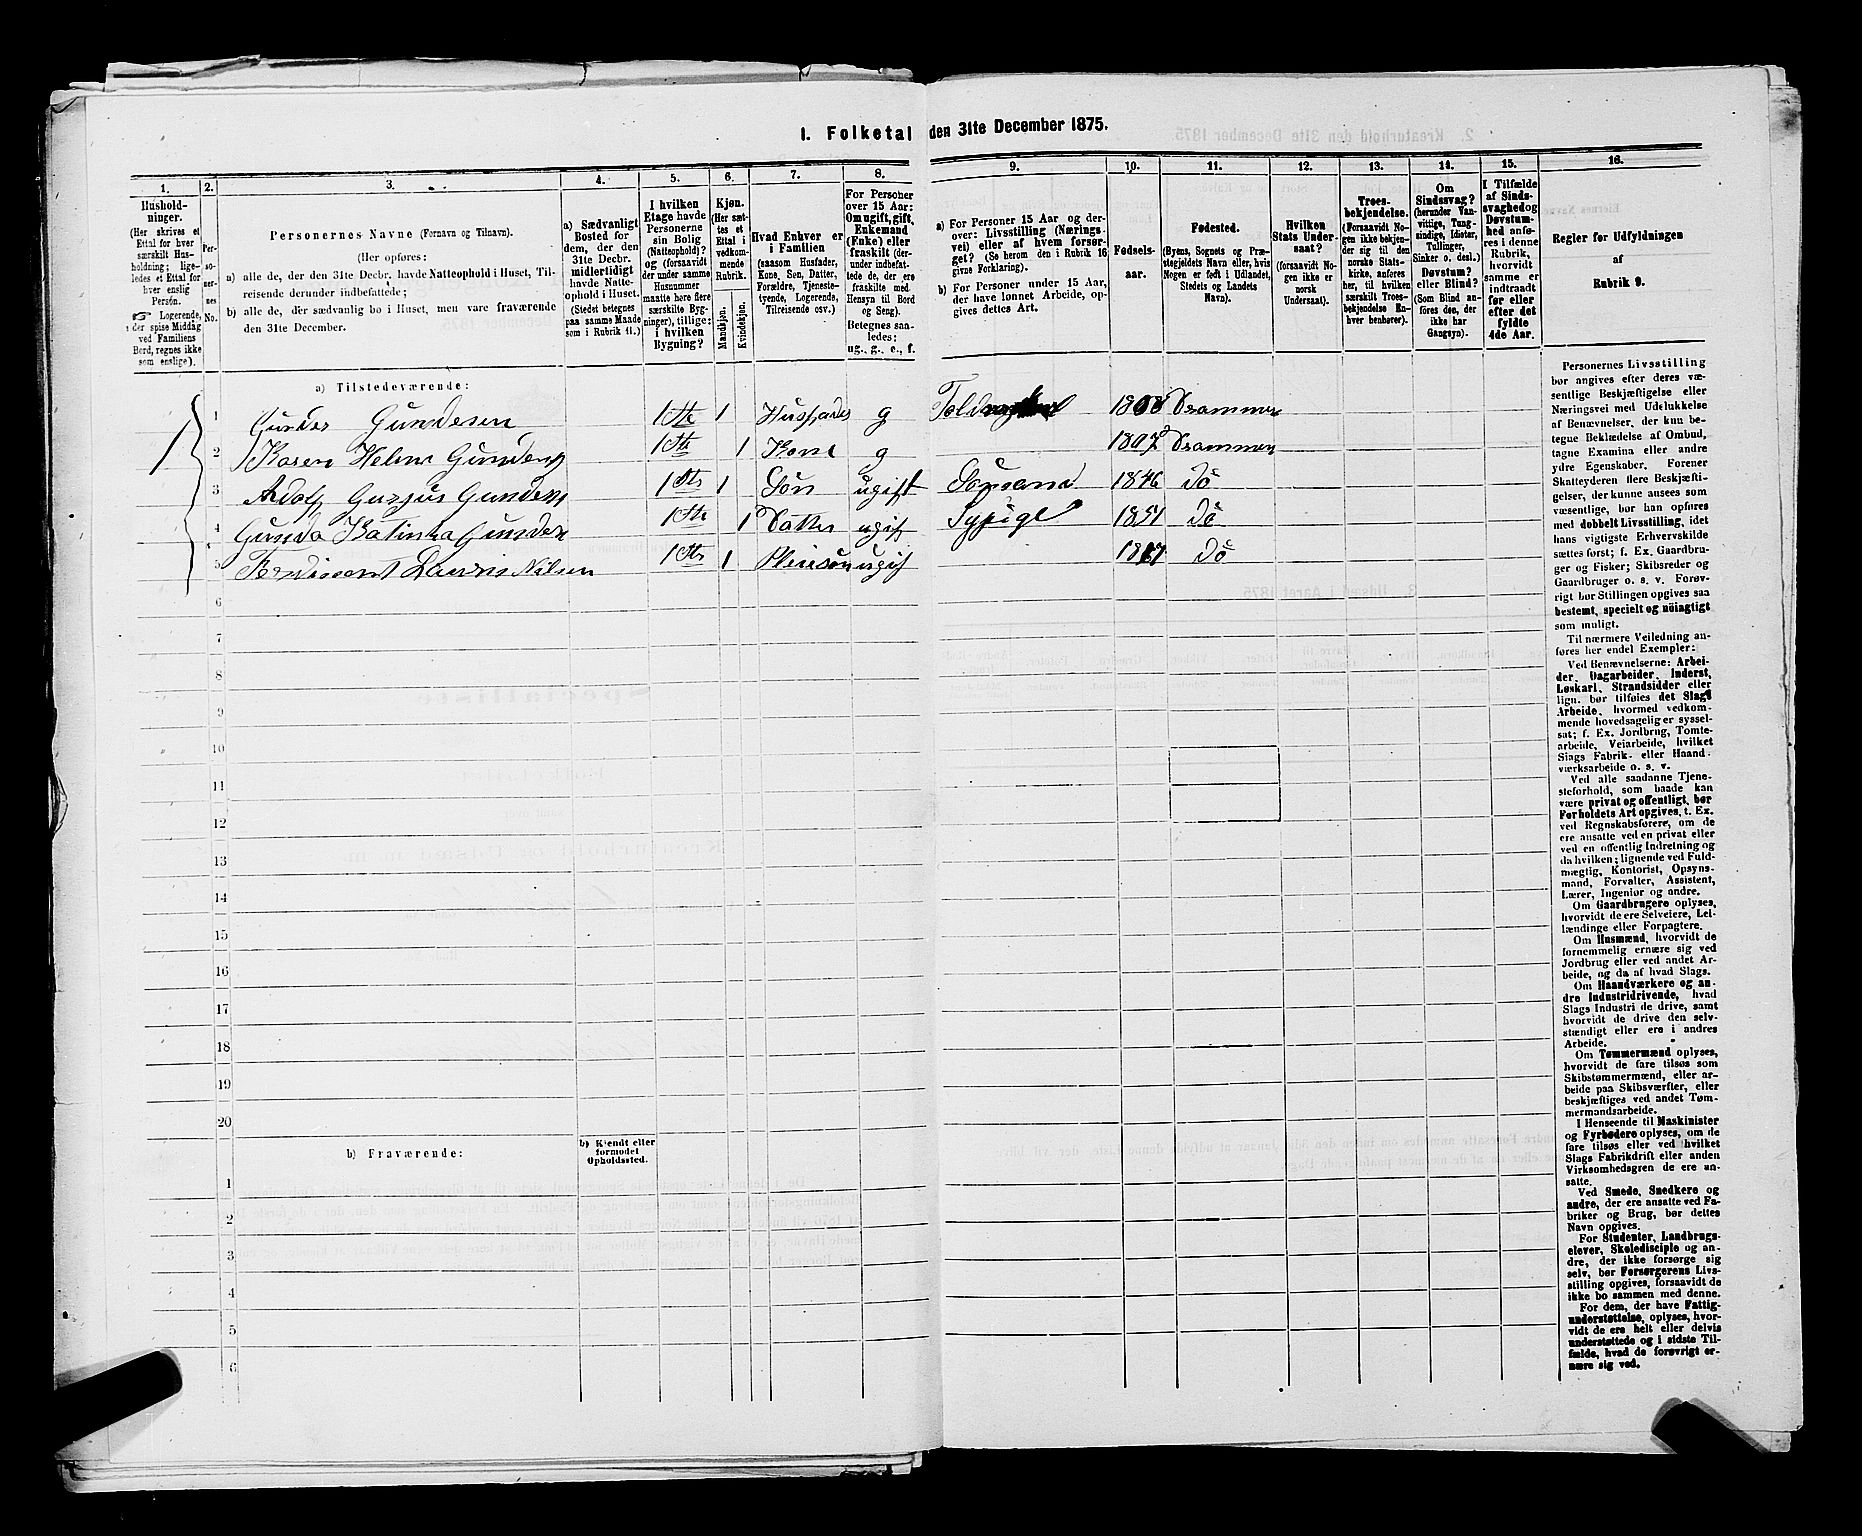 1. Folketal den 31te December 1875.
1. 2. 3. 4. 5. 6. 7. 8. 9. 10. 11. 12. 13. 14. 15. 16.
Hushold-
ninger.
(Her skrives et
Ettal for hver
særskilt Hus-
holdning; lige-
ledes et Ettal for
hver enslig
Person.
Logerende,
der spise Middag
ved Familiens
Bord, regnes ikke
som enslige).
Per-
so-
ner-
nes
No.
Personernes Navne (Fornavn og Tilnavn).
(Her opføres:
a) alle de, der den 31te Decbr. havde Natteophold i Huset, Til-
reisende derunder indbefattede;
b) alle de, der sædvanlig bo i Huset, men vare fraværende
den 31te December.
a) Sædvanligt
Bosted for
dem, der den
31te Decbr.
midlertidigt
havde Natte-
ophold i Huset.
(Stedet betegnes
paa samme Maade
som i Rubrik 11.)
I hvilken
Etage havde
Personerne
sin Bolig
(Natteophold)?
og (forsaavidt
der under samme
Husnummer
maatte høre flere
særskilte Byg-
ninger), tillige:
i hvilken
Bygning?
Kjøn.
(Her sæt-
tes et
Ettal i
vedkom-
mende
Rubrik.
Mandkjøn.
Kvindekjøn.
Hvad Enhver er
i Familien
(saasom Husfader,
Kone, Søn, Datter,
Forældre, Tjeneste-
tyende, Logerende,
Tilreisende osv.)
For Personer
over 15 Aar:
Om ugift, gift,
Enkemand
(Enke) eller
fraskilt (der-
under indbefat-
tede de, der ere
fraskilte med
Hensyn til Bord
og Seng).
Betegnes saa-
ledes:
ug., g., e., f.
a) For Personer 15 Aar og der-
over: Livsstilling (Nærings-
vei) eller af hvem forsør-
get? (Se herom den i Rubrik 16
givne Forklaring).
b) For Personer under 15 Aar,
der have lønnet Arbeide, op-
gives dettes Art.
Fødsels-
aar.
Fødested.
(Byens, Sognets og Præ-
stegjeldets Navn eller, hvis
Nogen er født i Udlandet,
Stedets og Landets
Navn).
Hvilken
Stats Under-
saat?
(forsaavidt No-
gen ikke er
norsk
Undersaat).
Troes-
bekjendelse.
(Forsaavidt No-
gen ikke bekjen-
der sig til den
norske Stats-
kirke, anføres
her, til hvilken
særskilt Troes-
bekjendelse En-
hver henhører).
Om
Sindssvag?
(herunder Van-
vittige, Tung-
sindige, Idioter,
Tullinger,
Sinker o. desl.)
Døvstum?
eller Blind?
(Som Blind an-
føres den, der
ikke har
Gangsyn).
I Tilfælde
af Sinds-
svaghed og
Døvstum-
hed anfø-
res i denne
Rubrik,
hvorvidt
samme er
indtraadt
før eller
efter det
fyldte
4de Aar.
Regler for Udfyldningen
af
Rubrik 9.
a) Tilstedeværende:
1 1 Gunder Gundersen 1ste 1 Husfader g 1808 Drammen
2 Karen Helene Gundersen 1ste 1 Kone g 1807 Drammen
3 Adolf Gunders 1ste 1 Søn ugift 1846 Do
4 Gunda Katinka Gundersen 1ste 1 Datter ugift Sypige 1851 Do
5 Nilsen 1ste 1 Pleiesøn ugift Do
6
7
8
9
10
11
12
13
14
15
16
17
18
19
20
b) Fraværende:
b) Kjendt eller
formodet
Opholdssted.
1
2
3
4
5
6
Personernes Livsstilling
bør angives efter deres væ-
sentlige Beskjæftigelse eller
Næringsvei med Udelukkelse
af Benævnelser, der kun be-
tegne Beklædelse af Ombud,
tagne Examina eller andre
ydre Egenskaber. Forener
Skatteyderen flere Beskjæfti-
gelser, der kunne ansees som
væsentlige, bør han opføres
med dobbelt Livsstilling, idet
hans vigtigste Erhvervskilde
sættes først; f. Ex. Gaardbru-
ger og Fisker; Skibsreder og
Gaardbruger o. s. v. Forøv-
rigt bør Stillingen opgives saa
bestemt, specielt og nøiagtigt
som muligt.
Til nærmere Veiledning an-
føres her endel Exempler:
Ved Benævnelserne: Arbei-
der, Dagarbeider, Inderst,
Løskarl, Strandsidder eller
lign. bør tilføies det Slags
Arbeide, hvormed vedkom-
mende hovedsagelig er syssel-
sat; f. Ex. Jordbrug, Tomte-
arbeide, Veiarbeide, hvilket
Slags Fabrik- eller Haand-
værksarbeide o. s. v.
Ved alle saadanne Tjene-
steforhold, som baade kan
være privat og offentligt, bør
Forholdets Art opgives, t. Ex.
ved Regnskabsførere, om de
ere ansatte ved en privat eller
ved en offentlig Indretning og
da hvilken; lignende ved Fuld-
mægtig, Kontorist, Opsyns-
mand, Forvalter, Assistent,
Lærer, Ingeniør og andre.
Om Gaardbrugere oplyses,
hvorvidt de ere Selveiere, Lei-
lændinge eller Forpagtere.
Om Husmænd, hvorvidt de
fornemmelig ernære sig ved
Jordbrug eller ved andet Ar-
beide, og da af hvad Slags.
Om Haandværkere og an-
dre Industridrivende, hvad
Slags Industri de drive, samt
hvorvidt de drive den selv-
stændigt eller ere i andres
Arbeide.
Om Tømmermænd oplyses,
hvorvidt de fare tilsøs som
Skibstømmermænd, eller ar-
beide paa Skibsværfter, eller
beskjæftiges ved andet Tøm-
mermandsarbeide.
I Henseende til Maskinister
og Fyrbødere oplyses, om de
fare tilsøs eller ved hvilket
Slags Fabrikdrift eller anden
Virksomhedsgren de ere an-
satte.
Ved Smede, Snedkere og
andre, der ere ansatte ved Fa-
briker og Brug, bør dettes
Navn opgives.
For Studenter, Landbrugs-
elever, Skoledisciple og an-
dre, der ikke forsørge sig
selv, bør Forsørgerens Livs-
stilling opgives, forsaavidt de
ikke bo sammen med denne.
For dem, der have Fattig-
understøttelse, oplyses, hvor-
vidt de ere helt eller delvis
understøttede og i sidste Til-
fælde, hvad de forøvrigt er-
nære sig ved.